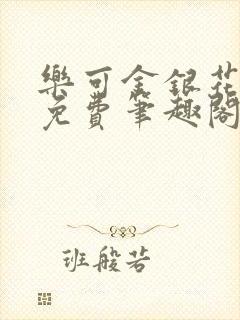 樂可金銀花
免費筆趣閣
班般若